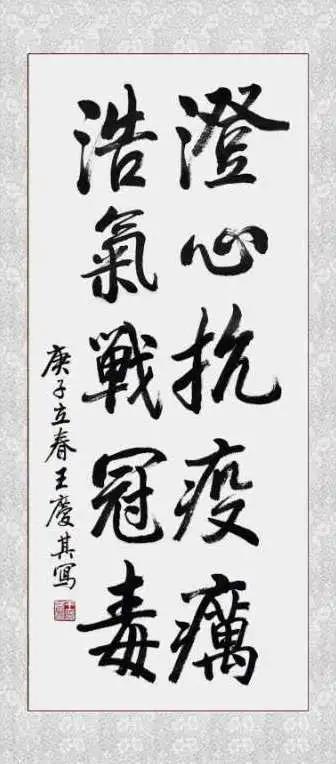 澄心抗疫癘
浩氣戰冠毒
庚子立春王慶其寫